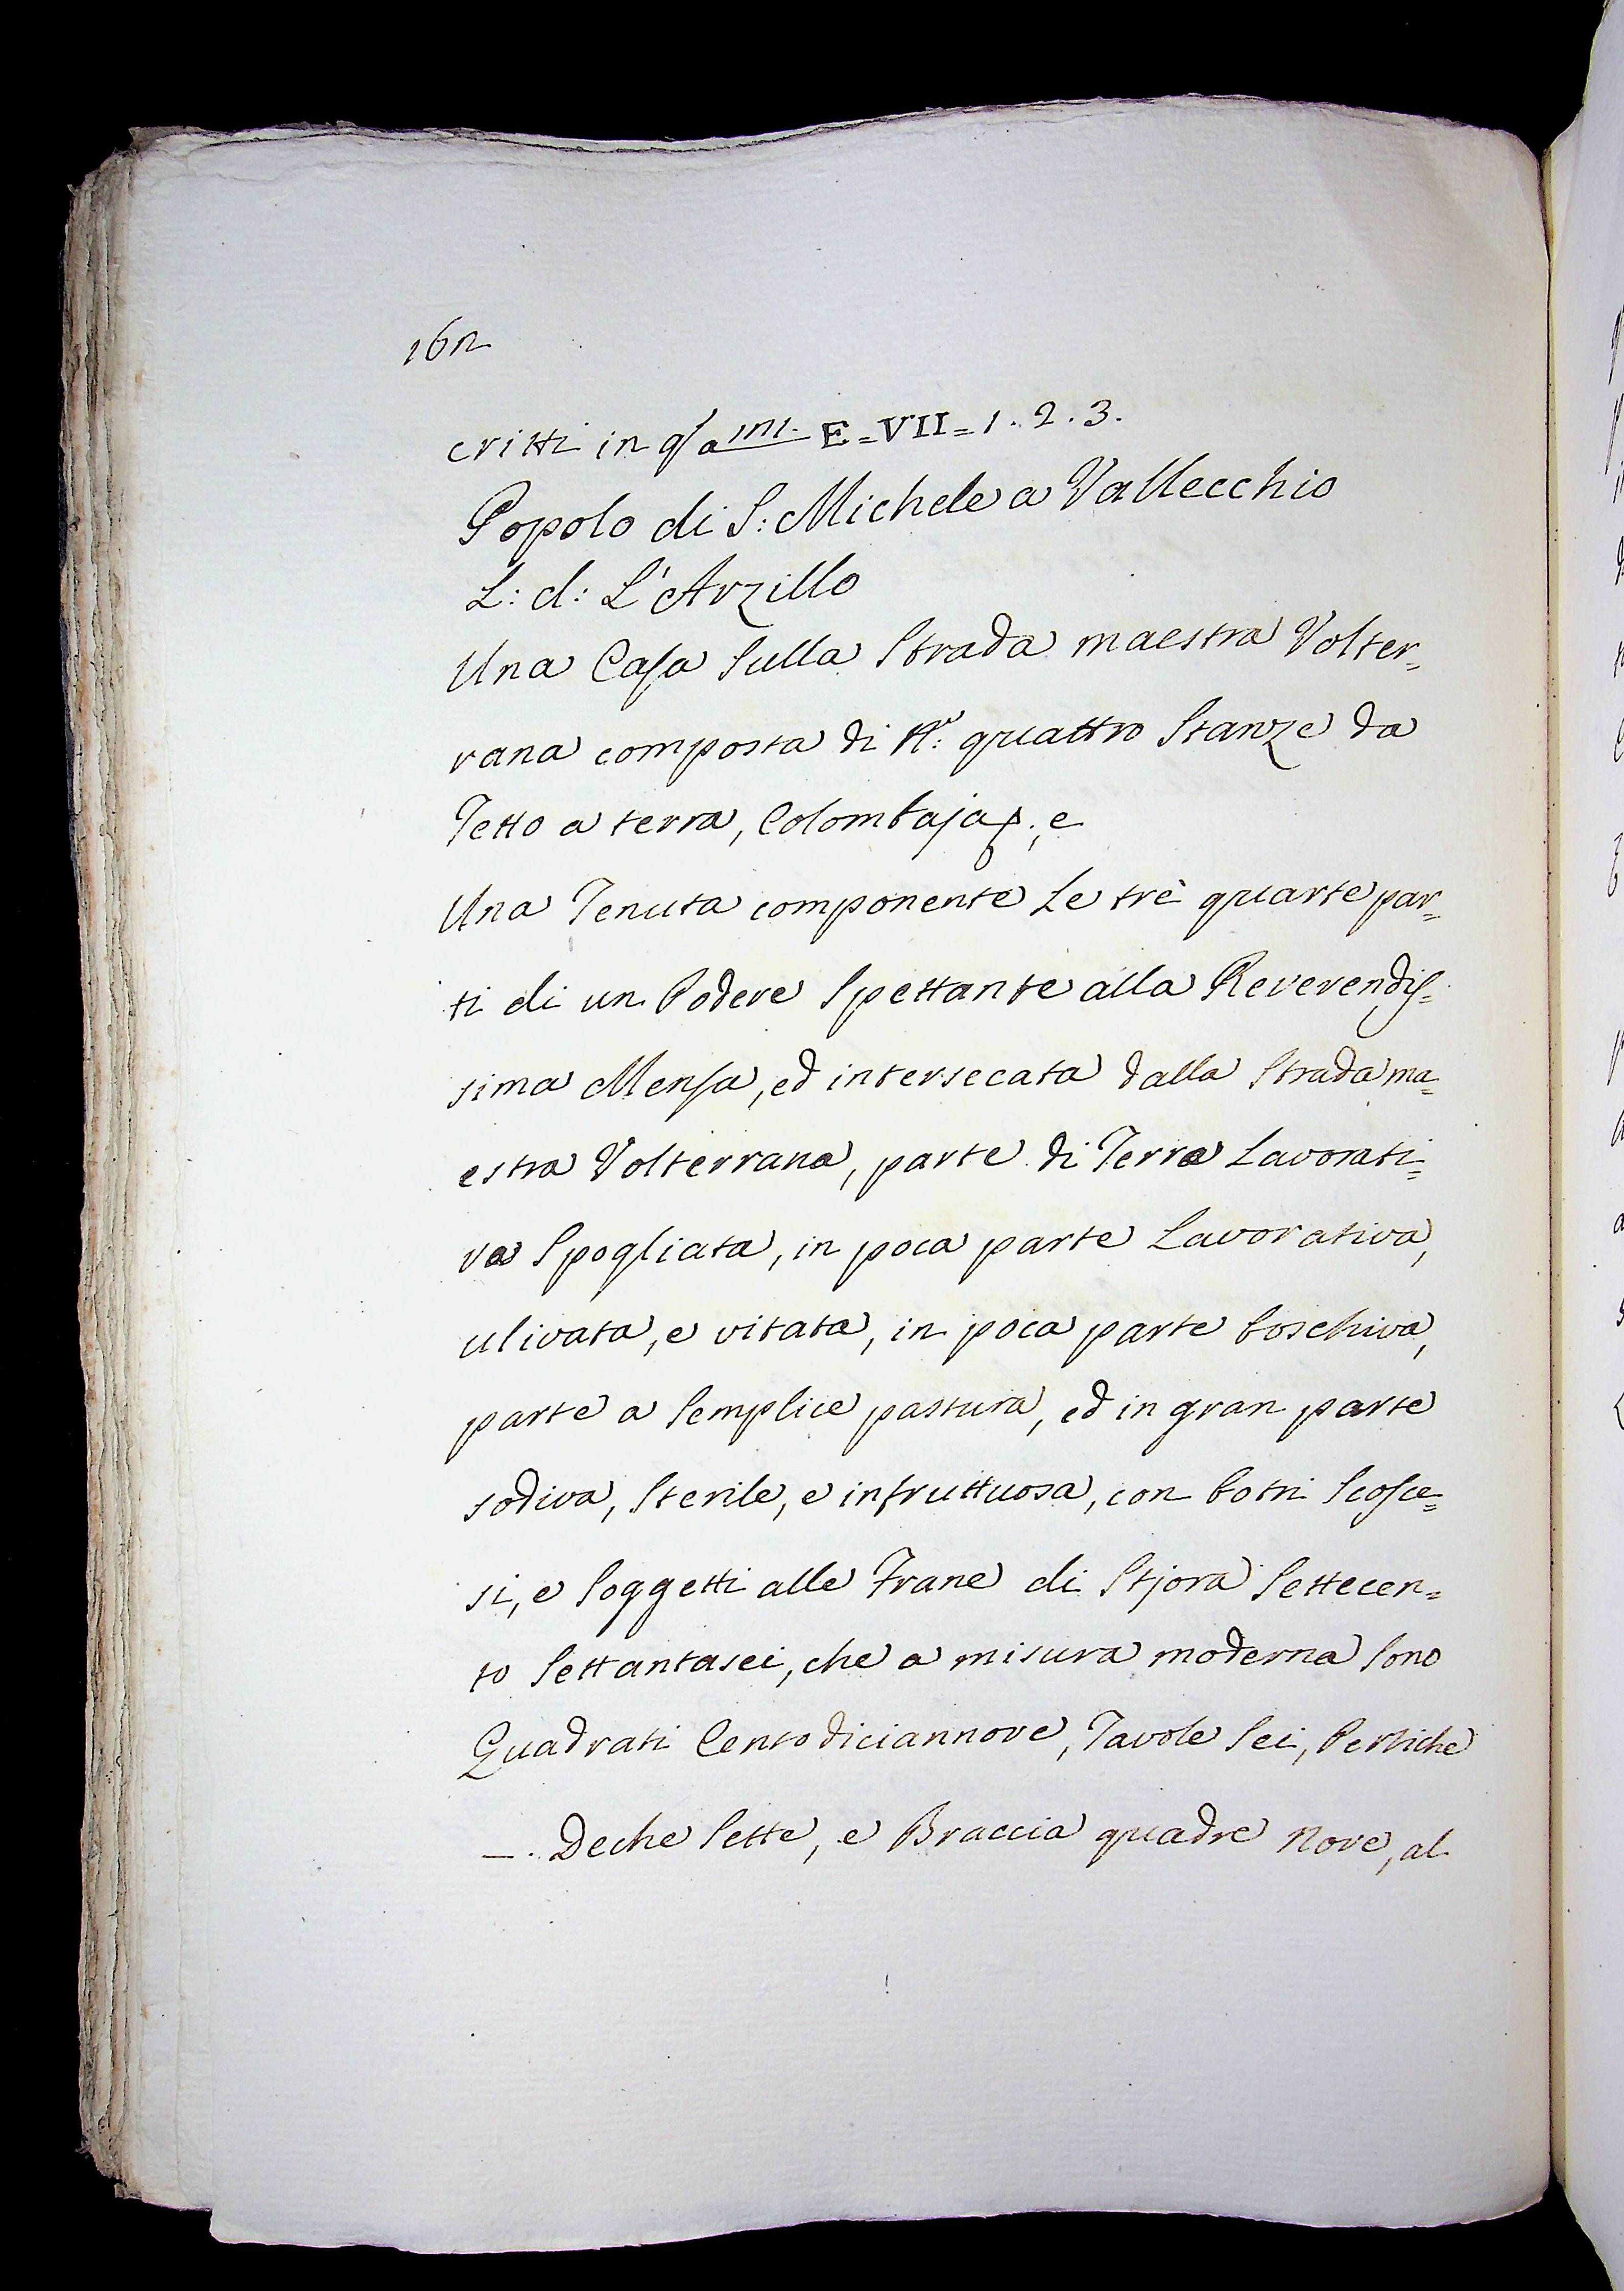 162
critti in q/a m. E=VII=1.2.3.
Popolo di S: Michele a Vallecchio
L: d: L'Arzillo
Una Casa sulla Strada maestra Volter=
rana composta di N.º quattro Stanze da
Tetto a terra, Colombaja &; e
Una Tenuta componente le trè quarte par=
ti di un Podere Spettante alla Reverendis=
sima Mensa, ed intersecata dalla Strada ma=
estra Volterrana, parte di Terra Lavorati=
va Spogliata, in poca parte Lavorativa,
ulivata, e vitata, in poca parte boschiva,
parte a semplice pastura, ed in gran parte
sodiva, Sterile, e infruttuosa, con botri Scosce=
si, e soggetti alle Frane di Stjora Settecen=
to Settantasei, che a misura moderna sono
Quadrati Centodiciannove, Tavole Sei, Pertiche
—. Deche Sette, e Braccia quadre Nove, al